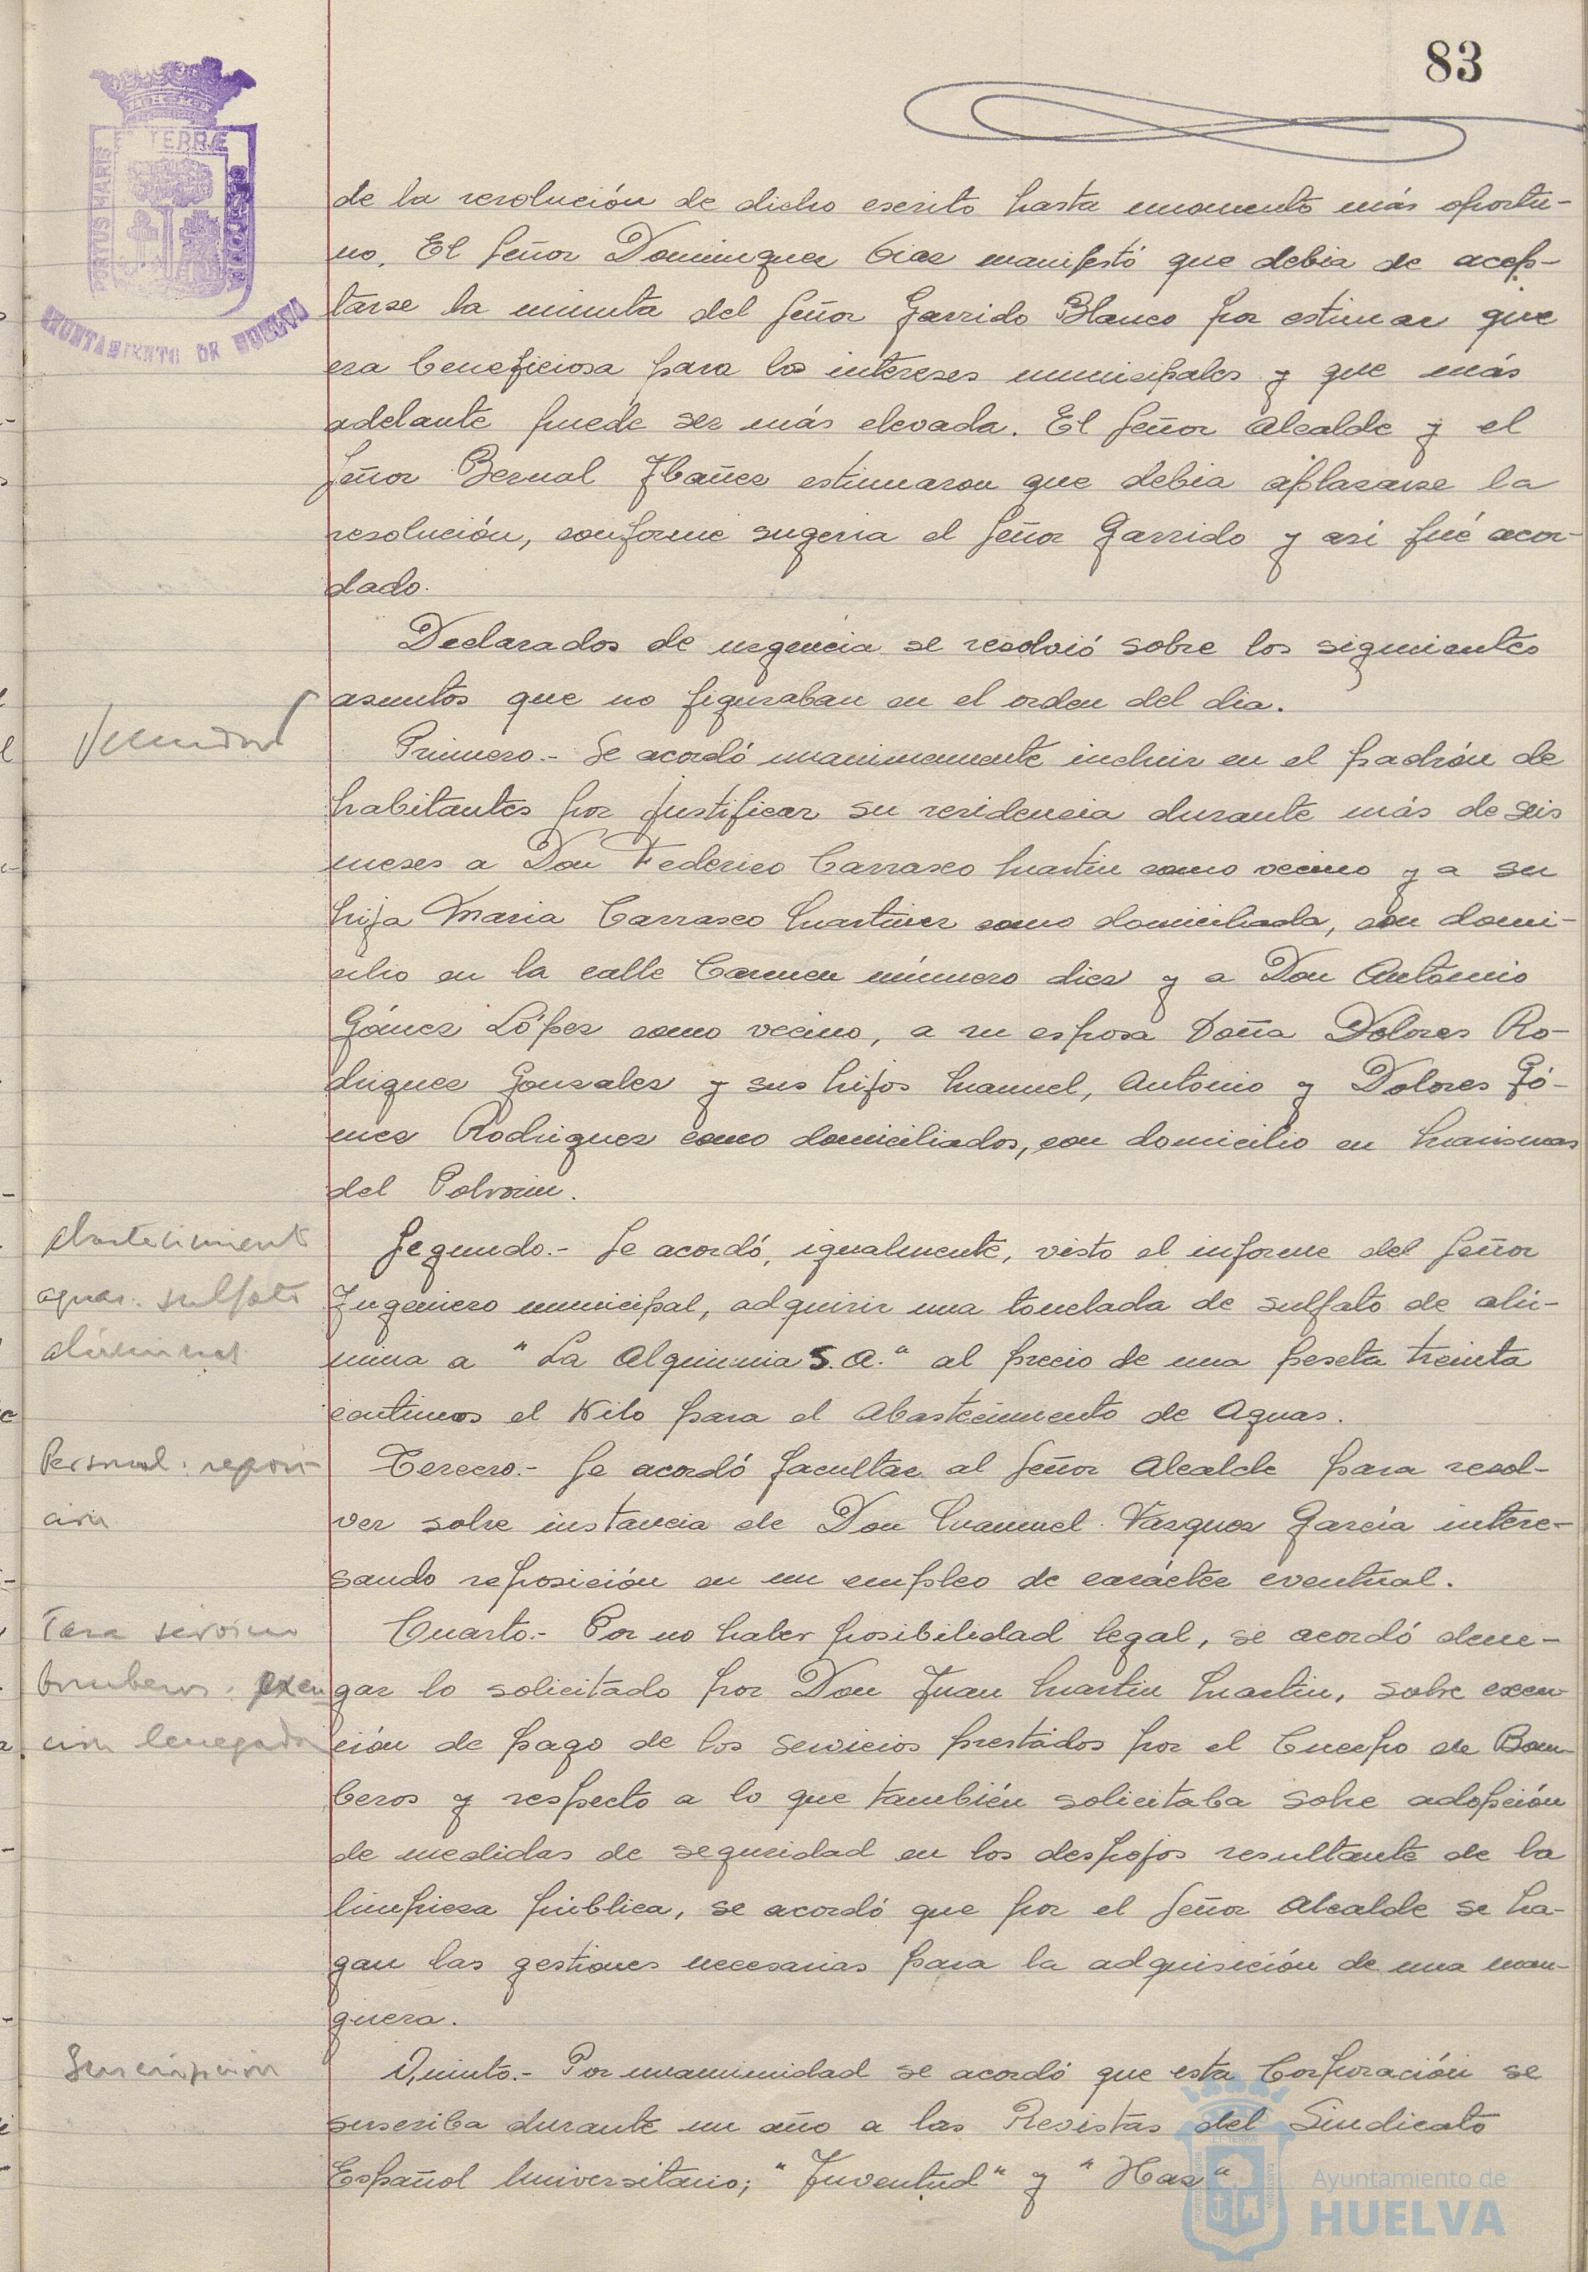 83
PORTUS MARIS
ET TERRÆ
CUSTO
AYUNTAMIENTO DE HUELVA
de la resolución de dicho escrito hasta momento más oportu-
no. El Señor Dominguez manifestó que debia de acep-
tarse la minuta del Señor Garrido Blanco por estimar que
era beneficiosa para los intereses municipales y que más
adelante puede ser más elevada. El Señor Alcalde y el
Señor Bernal Ibañez estimaron que debia aplazarse la
resolución, conforme sugeria el Señor Garrido y asi fué acor-
dado.
Declarados de urgencia se resolvió sobre los siguientes
asuntos que no figuraban en el orden del dia.
Vecindad
Primero.- Se acordó unanimemente incluir en el padrón de
habitantes por justificar su residencia durante más de seis
meses a Don Federico Carrasco Martin como vecino y a su
hija Maria Carrasco Martinez como domiciliada, con domi-
cilio en la calle Carmen número diez y a Don Antonio
Gómez López como vecino, a su esposa Doña Dolores Ro-
driguez Gonzalez y sus hijos Manuel, Antonio y Dolores Gó-
mez Rodriguez como domiciliados, con domicilio en Marismas
del Polvorin.
Abastecimiento
aguas. sulfato
alúmina
Segundo.- Se acordó, igualmente, visto el informe del Señor
Ingeniero municipal, adquirir una tonelada de sulfato de alú-
mina a "La Alquimia S.A." al precio de una peseta treinta
centimos el Kilo para el Abastecimiento de Aguas.
Personal: reposi-
ción
Tercero.- Se acordó facultar al Señor Alcalde para resol-
ver sobre instancia de Don Manuel Vazquez García intere-
sando reposición en un empleo de carácter eventual.
Tasa servicio
bomberos. exen
ción denegada
Cuarto.- Por no haber posibilidad legal, se acordó dene-
gar lo solicitado por Don Juan Martin Martin, sobre exen-
ción de pago de los servicios prestados por el Cuerpo de Bom-
beros y respecto a lo que también solicitaba sobre adopción
de medidas de seguridad en los despojos resultante de la
limpieza pública, se acordó que por el Señor Alcalde se ha-
gan las gestiones necesarias para la adquisición de una man-
guera.
Suscripción
Quinto.- Por unanimidad se acordó que esta Corporación se
suscriba durante un año a las Revistas del Sindicato
Español Universitario; "Juventud" y "Haz"
Ayuntamiento de
HUELVA